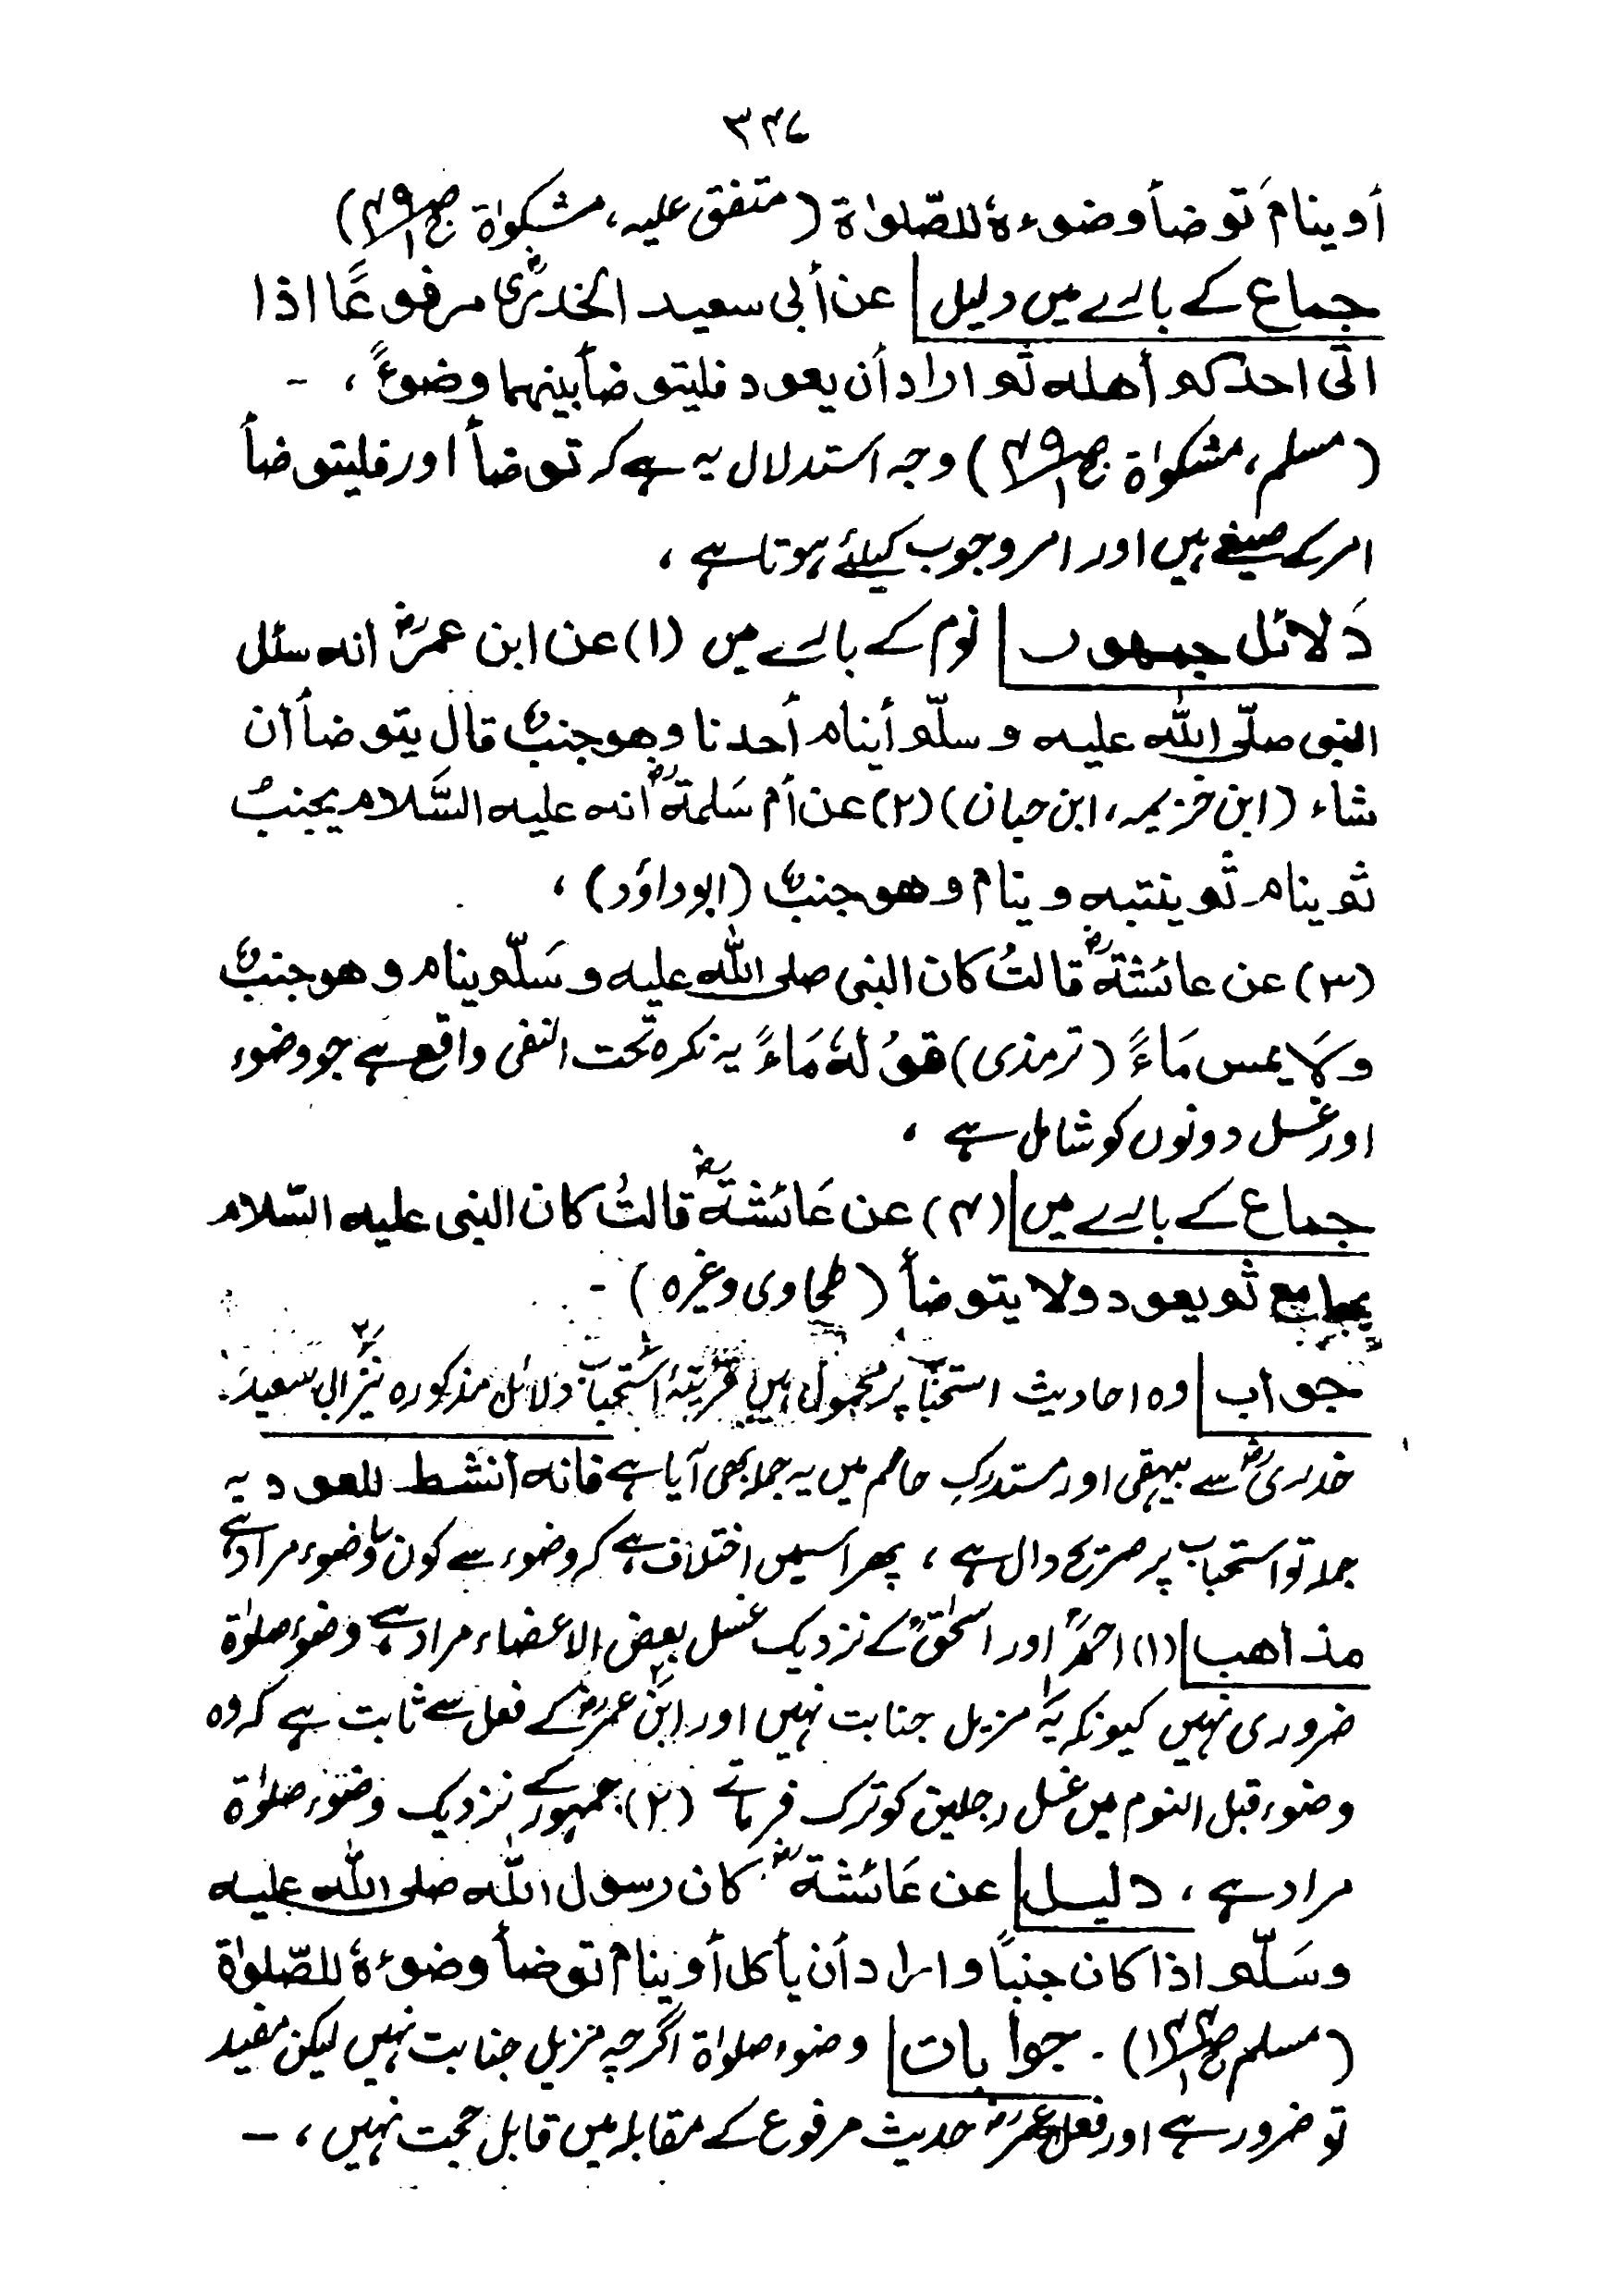 ۳۴۷
أو ینامَ توضأ وضوءہٗ للصّلوٰۃ (متفق علیہ، مشکوٰۃ ج۱ ص۴۹)
جماع کے بارے میں دلیل عن أبی سعید الخدریؓ مرفوعًا اذا
اتی احدکم أھلہ ثم اراد أن یعود فلیتوضأ بینھما وضوءً، ـ
(مسلم، مشکوٰۃ ج۱ ص۴۹) وجہ استدلال یہ ہے کہ توضأ اور فلیتوضأ
امر کے صیغے ہیں اور امر وجوب کیلئے ہوتا ہے،
دَلائل جمھور نوم کے بارے میں (۱) عن ابن عمرؓ انہ سئل
النبی صلّی اللّٰہ علیہ وسلّم أینام أحدنا وھو جنبٌ قال یتوضأ ان
شاء (ابن خزیمہ، ابن حبان) (۲) عن أم سَلمۃؓ انہ علیہ السَّلام یجنبُ
ثم ینام ثم ینتبہ وینام وھو جنبٌ (ابوداؤد)،
(۳) عن عائشۃؓ قالتُ کان النبی صلی اللّٰہ علیہ وسَلّم ینام وھو جنبٌ
ولَا یمس مَاءً (ترمذی) قولُہٗ مَاءً یہ نکرہ تحت النفی واقع ہے جو وضوء
اور غسل دونوں کو شامل ہے،
جماع کے بارے میں (۴) عن عَائشۃؓ قالتُ کان النبی علیہ السّلام
یجامع ثم یعود ولا یتوضأ (طحاوی وغیرہ) ـ
جواب وہ احادیث استحباب پر محمول ہیں قرینۂ استحباب دلائل مذکورہ نیز ابی سعید
خدریؓ سے بیہقی اور مستدرکِ حاکم میں یہ جملہ بھی آیا ہے فانہ أنشط للعود یہ
جملہ تو استحباب پر صریح دال ہے، پھر اسمیں اختلاف ہے کہ وضوء سے کون سا وضوء مراد ہے
مذاھب (۱) احمدؒ اور اسحٰقؒ کے نزدیک غسل بعض الاعضاء مراد ہے وضوءِ صلوٰۃ
ضروری نہیں کیونکہ یہ مزیل جنابت نہیں اور ابن عمرؓ کے فعل سے ثابت ہے کہ وہ
وضوء قبل النوم میں غسل رجلین کو ترک فرماتے (۲) جمہور کے نزدیک وضوء صلوٰۃ
مراد ہے، دلیل عن عَائشۃؓ کان رسول اللّٰہ صلی اللّٰہ علیہ
وسَلّم اذا کان جنبًا و اراد أن یأکل أو ینام توضأ وضوءہٗ للصّلوٰۃ
(مسلم ج۱ ص۱۴۴) ۔ جوابات وضوء صلوٰۃ اگرچہ مزیل جنابت نہیں لیکن مفید
تو ضرور ہے اور فعل عمرؓ حدیث مرفوع کے مقابلہ میں قابل حجت نہیں، ـ